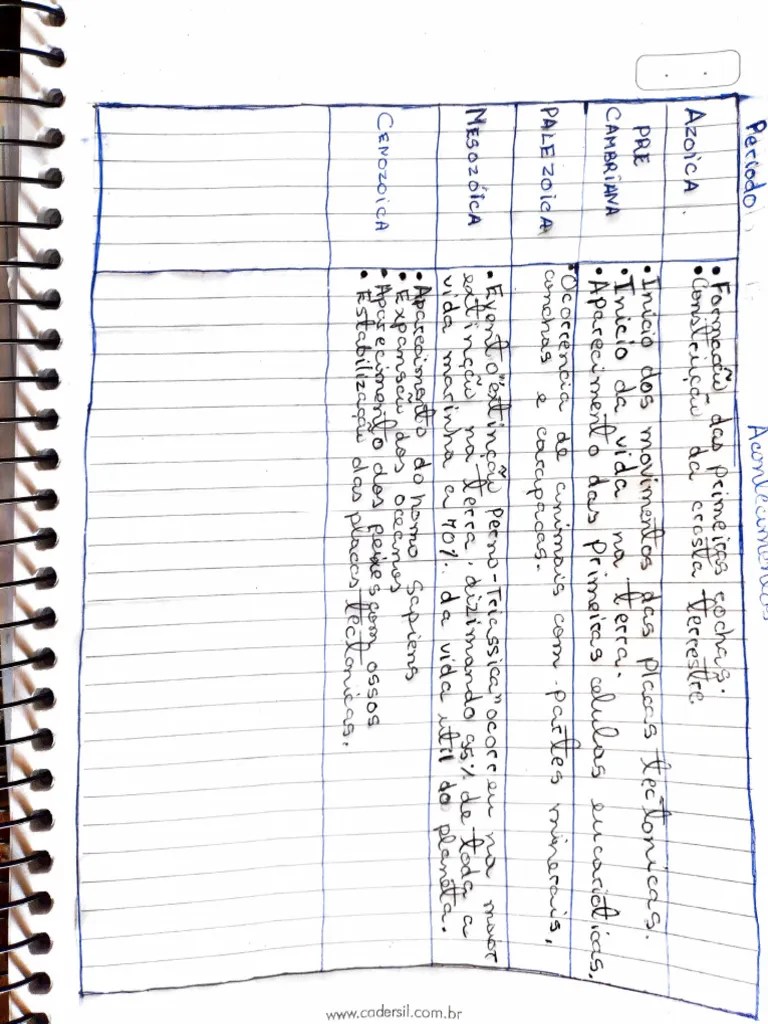 Período
Acontecimentos
AZOICA.
• Formação das primeiras rochas.
• Construção da crosta terrestre
PRE
CAMBRIANA
• Início dos movimentos das placas tectonicas.
• Início da vida na terra.
• Aparecimento das primeiras celulas eucarioticas.
PALEZOICA
• Ocorrência de animais com partes minerais,
conchas e carapacas.
MESOZÓICA
• Evento "extinção Permo-Triassica" ocorreu na maior
extinção na terra, dizimando 95% de toda a
vida marinha e 70% da vida util do planeta.
CENOZOICA
• Aparecimento do homo sapiens
• Expansão dos oceanos
• Aparecimento dos peixes com ossos
• Estabilização das placas tectonicas.
www.cadersil.com.br